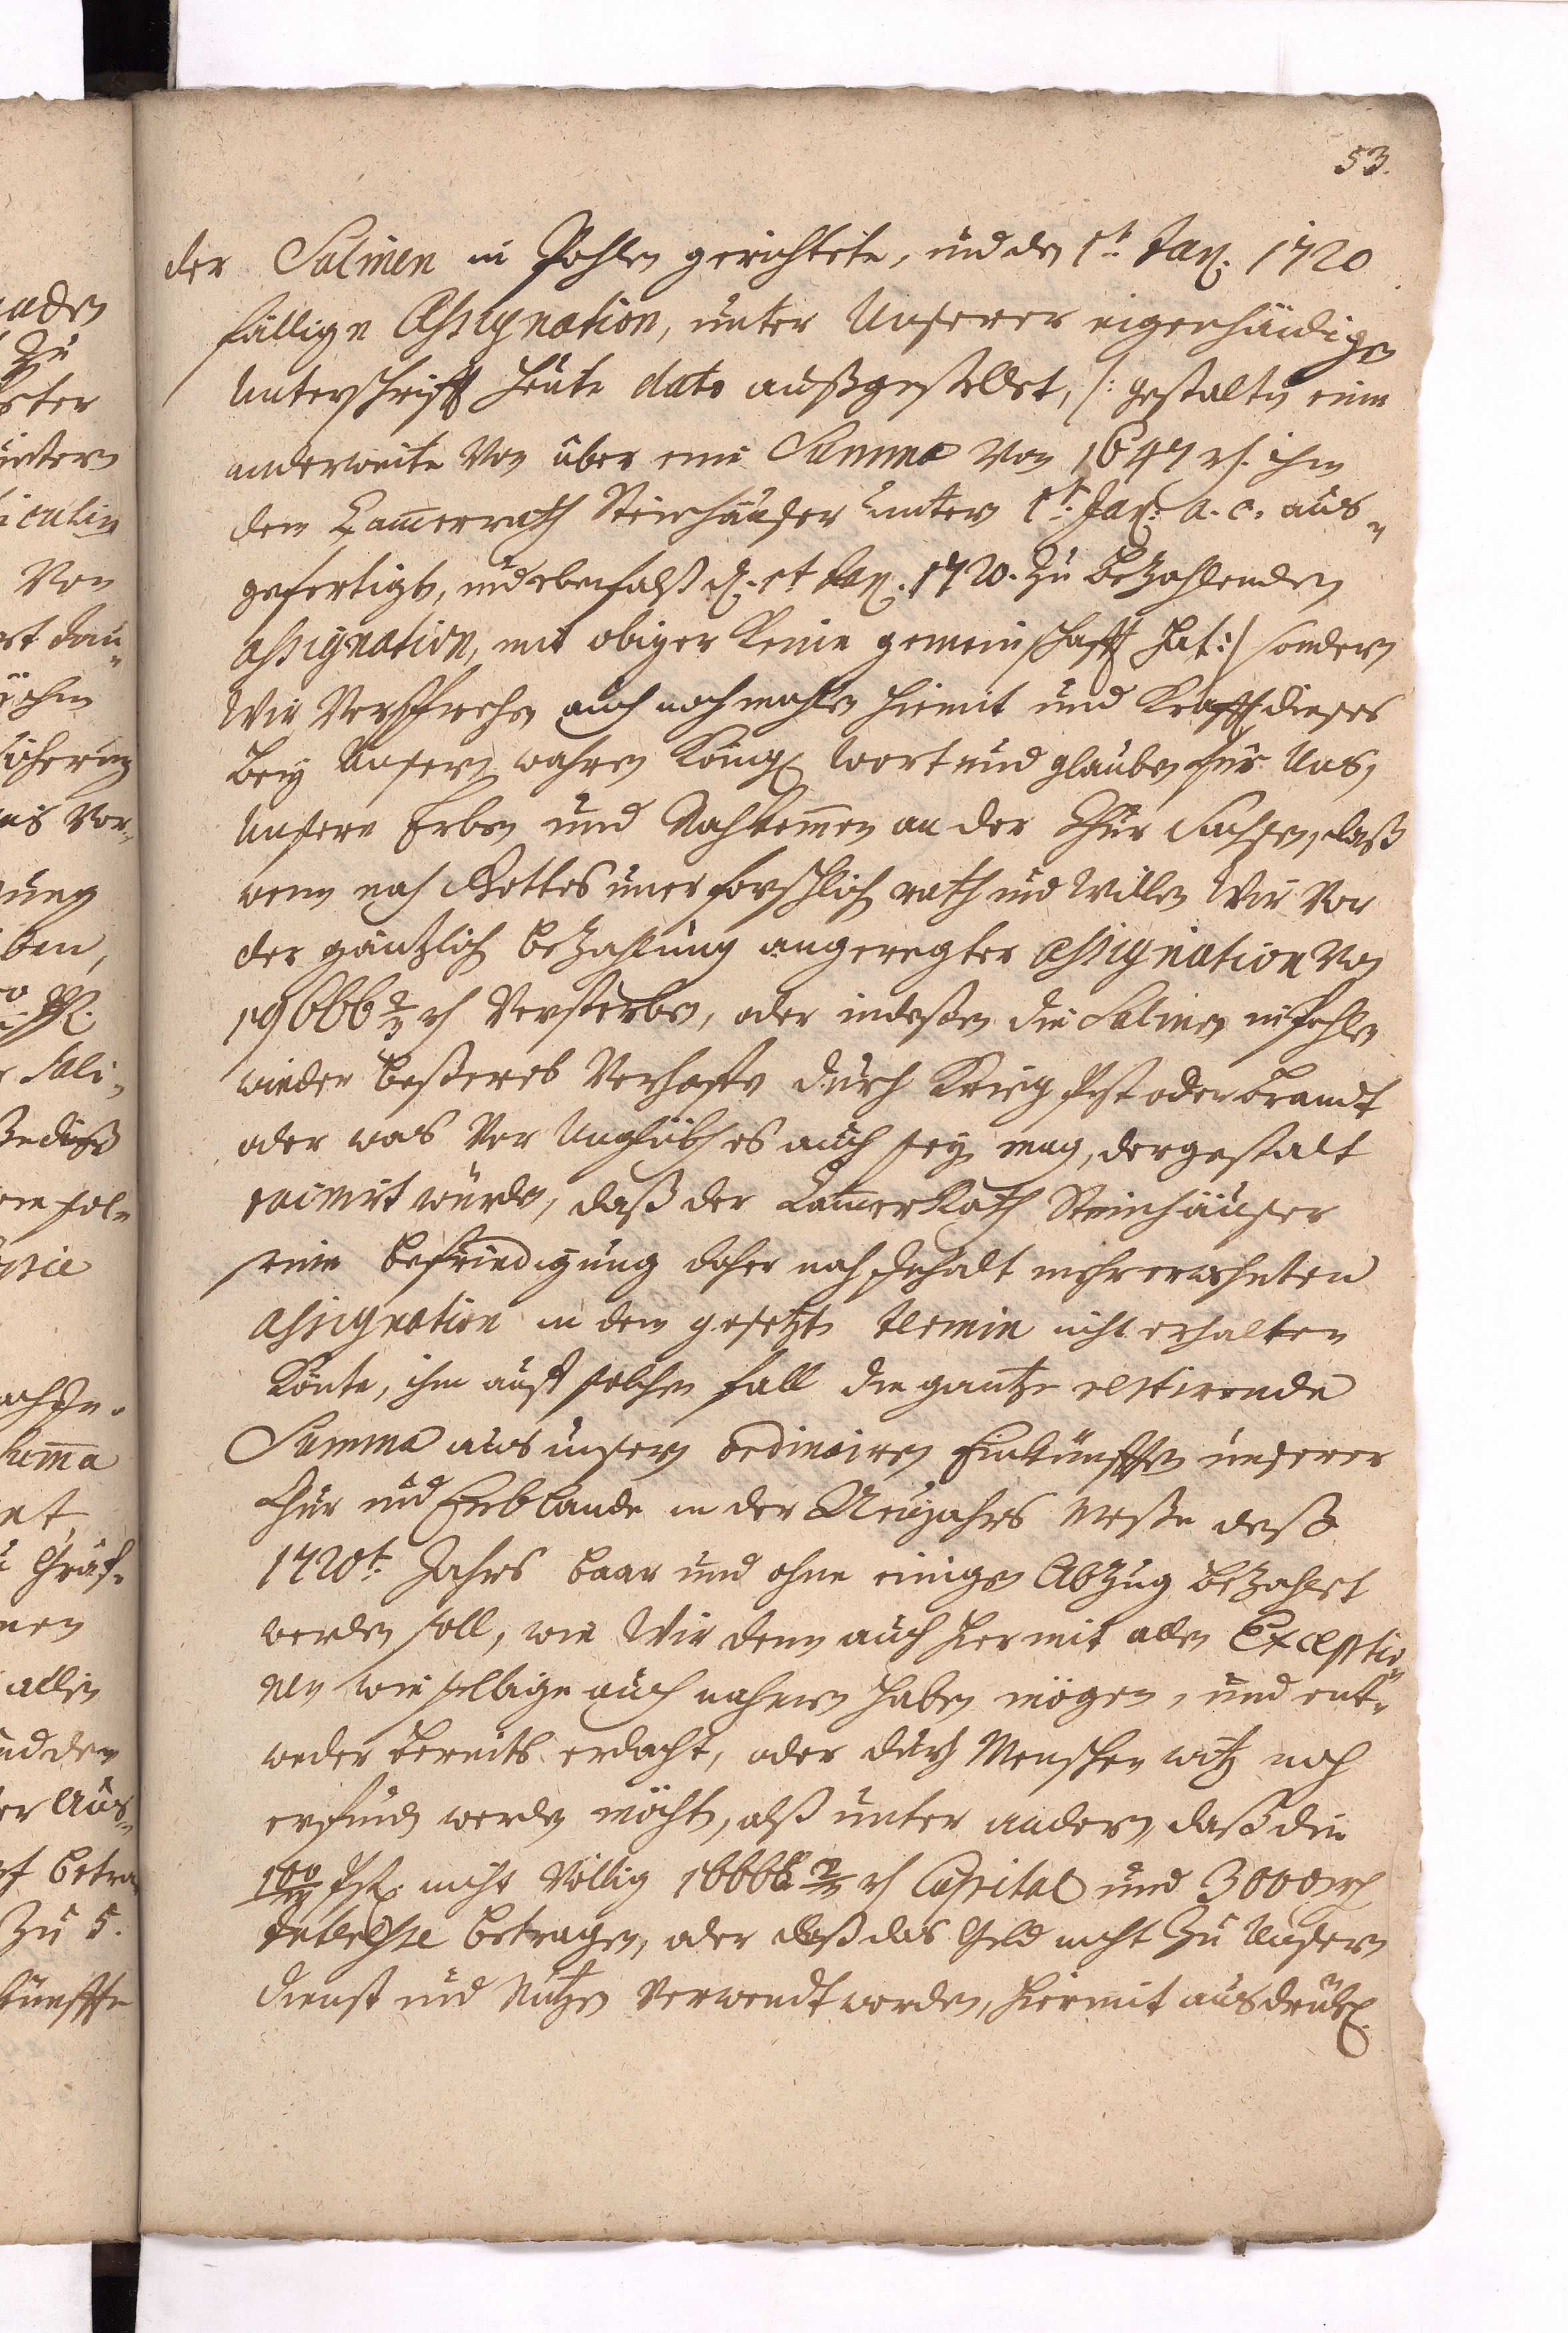 53.
der Salinen in Pohlen gerichtete, und den 1t. Jan. 1720
fällige Assignation, unter Unserer eigenhändigen
Unterschrifft heute dato außgestellet, /: gestalten eine
anderweite von über eine Summa von 1647 rh. ihm
dem Cammerrath Steinhäuser unterm 1t. Jan: a. c. aus„
gefertigt, und ebenfalß d. 1t Jan. 1720. zu bezahlenden
assignation, mit obiger keine gemeinschafft hat :/ sondern
Wir Versprechen auch nochmahln hiemit und Krafft dieses
bey Unsern wahren Königl. Wort und glauben für Uns,
Unsere Erben und Nachkommen an der Chur Sachsen, daß
wenn nach Gottes unerforschlich rath und Willen Wir vor
der gäntzlich bezahlung angeregter assignation von
19666 2/3 rh Versterben, oder indeßen die Salinen in Pohlen
wieder beßeres Verhoffen durch Krieg Pest oder Brandt
oder was Vor Unglück es auch sey mag, dergestalt
ruinirt würde, daß der CammerRath Steinhäuser
seine befriedigung daher nach Inhalt mehrerwehnten
assignation in dem gesetzten Termin nicht erhalten
könte, ihm auff solchen fall die gantze restirende
Summa aus unsern ordinairen Einkünfften unserer
Chur und Erblande in der Neujahrs Meße deß
1720t. Jahrs baar und ohne einigen Abzug bezahlet
werden soll, wie Wir denn auch hiermit allen Exceptio„
nen wie selbige auch nahmen haben mögen, und ent„
weder bereits erdacht, oder durch Menschen witz noch
erfunden werden möchten, alß unter andern, daß die
100/m nicht Völlig 16666 2/3 rh Capital und 3000 rh
Interesse betragen, oder daß das Geld nicht zu Unsern
Dienst und Nutzen verwendt worden, hiermit ausdrückl.
aden
zu
unter
Von
ichern
Vor„
ung
ben,
Sali„
Summa
et
nen
allen
und den
er Aus„
betra
zu 5.
künffte